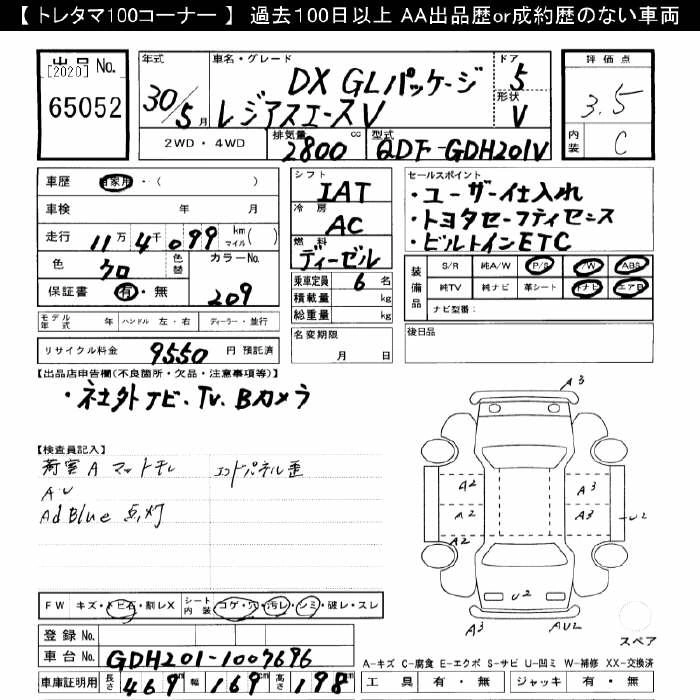 【 トレタマ100コーナー 】 過去100日以上 AA出品歴or成約歴のない車両
出品 No.
[2020]
65052
年式
30/5月
車名・グレード
DX GLパッケージ
レジアスエースV
ドア
5
形状
V
評価点
3.5
内装
C
2WD・4WD
排気量 cc
2800
型式
QDF-GDH201V
車歴 自家用・( )
車検 年 月
走行 11万 4千 099 km マイル( )
色 クロ 色替 カラーNo. 209
保証書 有・無
シフト
IAT
冷房
AC
燃料
ディーゼル
乗車定員 6 名
積載量 kg
総重量 kg
名変期限
月 日
セールスポイント
・ユーザー仕入れ
・トヨタセーフティセンス
・ビルトインETC
装備品
S/R 純A/W P/S P/W ABS
純TV 純ナビ 革シート 外ナビ エアB
ナビ型番:
後日品
モデル年式 年 ハンドル 左・右 ディーラー・並行
リサイクル料金 9550 円 預託済
【出品店申告欄(不良箇所・欠品・注意事項等)】
・社外ナビ、TV、Bカメラ
【検査員記入】
荷室A マットモレ エンドパネル歪
AU
AdBlue 点灯
A3
A2 A3
A2 A2
A2 A3
U2
U2
A3 AU2
スペア
FW キズ・トビ石・割レX シート内装 コゲ・穴・汚レ・シミ・破レ・スレ
登録 No.
車台 No. GDH201-1007696
車庫証明用 長さ 469 cm 幅 169 cm 高さ 198 cm
A-キズ C-腐食 E-エクボ S-サビ U-凹ミ W-補修 XX-交換済
工具 有・無 ジャッキ 有・無